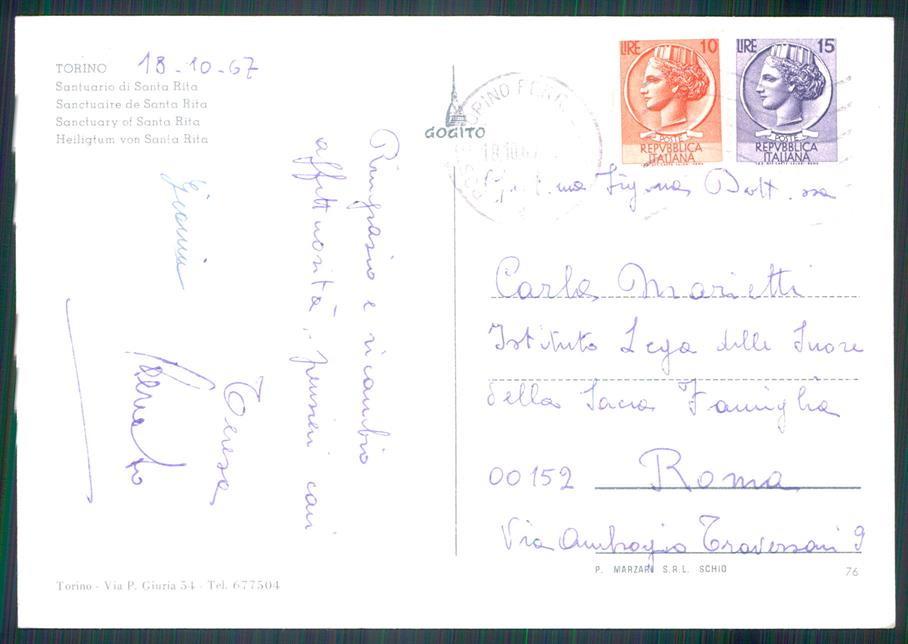 TORINO 18-10-67
Santuario di Santa Rita
Sanctuaire de Santa Rita
Sanctuary of Santa Rita
Heiligtum von Santa Rita
Ringrazio e ricambio
affettuosità, pensieri cari
Teresa
Renato
Gianni
Torino - Via P. Giuria 54 - Tel. 677504
GOGITO
TORINO FERR.
18.10.67
LIRE 10
POSTE
REPVBBLICA
ITALIANA
LIRE 15
POSTE
REPVBBLICA
ITALIANA
Gent.ma Sig.na Dott.ssa
Carla Marietti
Istituto Lega delle Suore
della Sacra Famiglia
00152 Roma
Via Ambrogio Traversari 9
P. MARZARI S.R.L. SCHIO
76